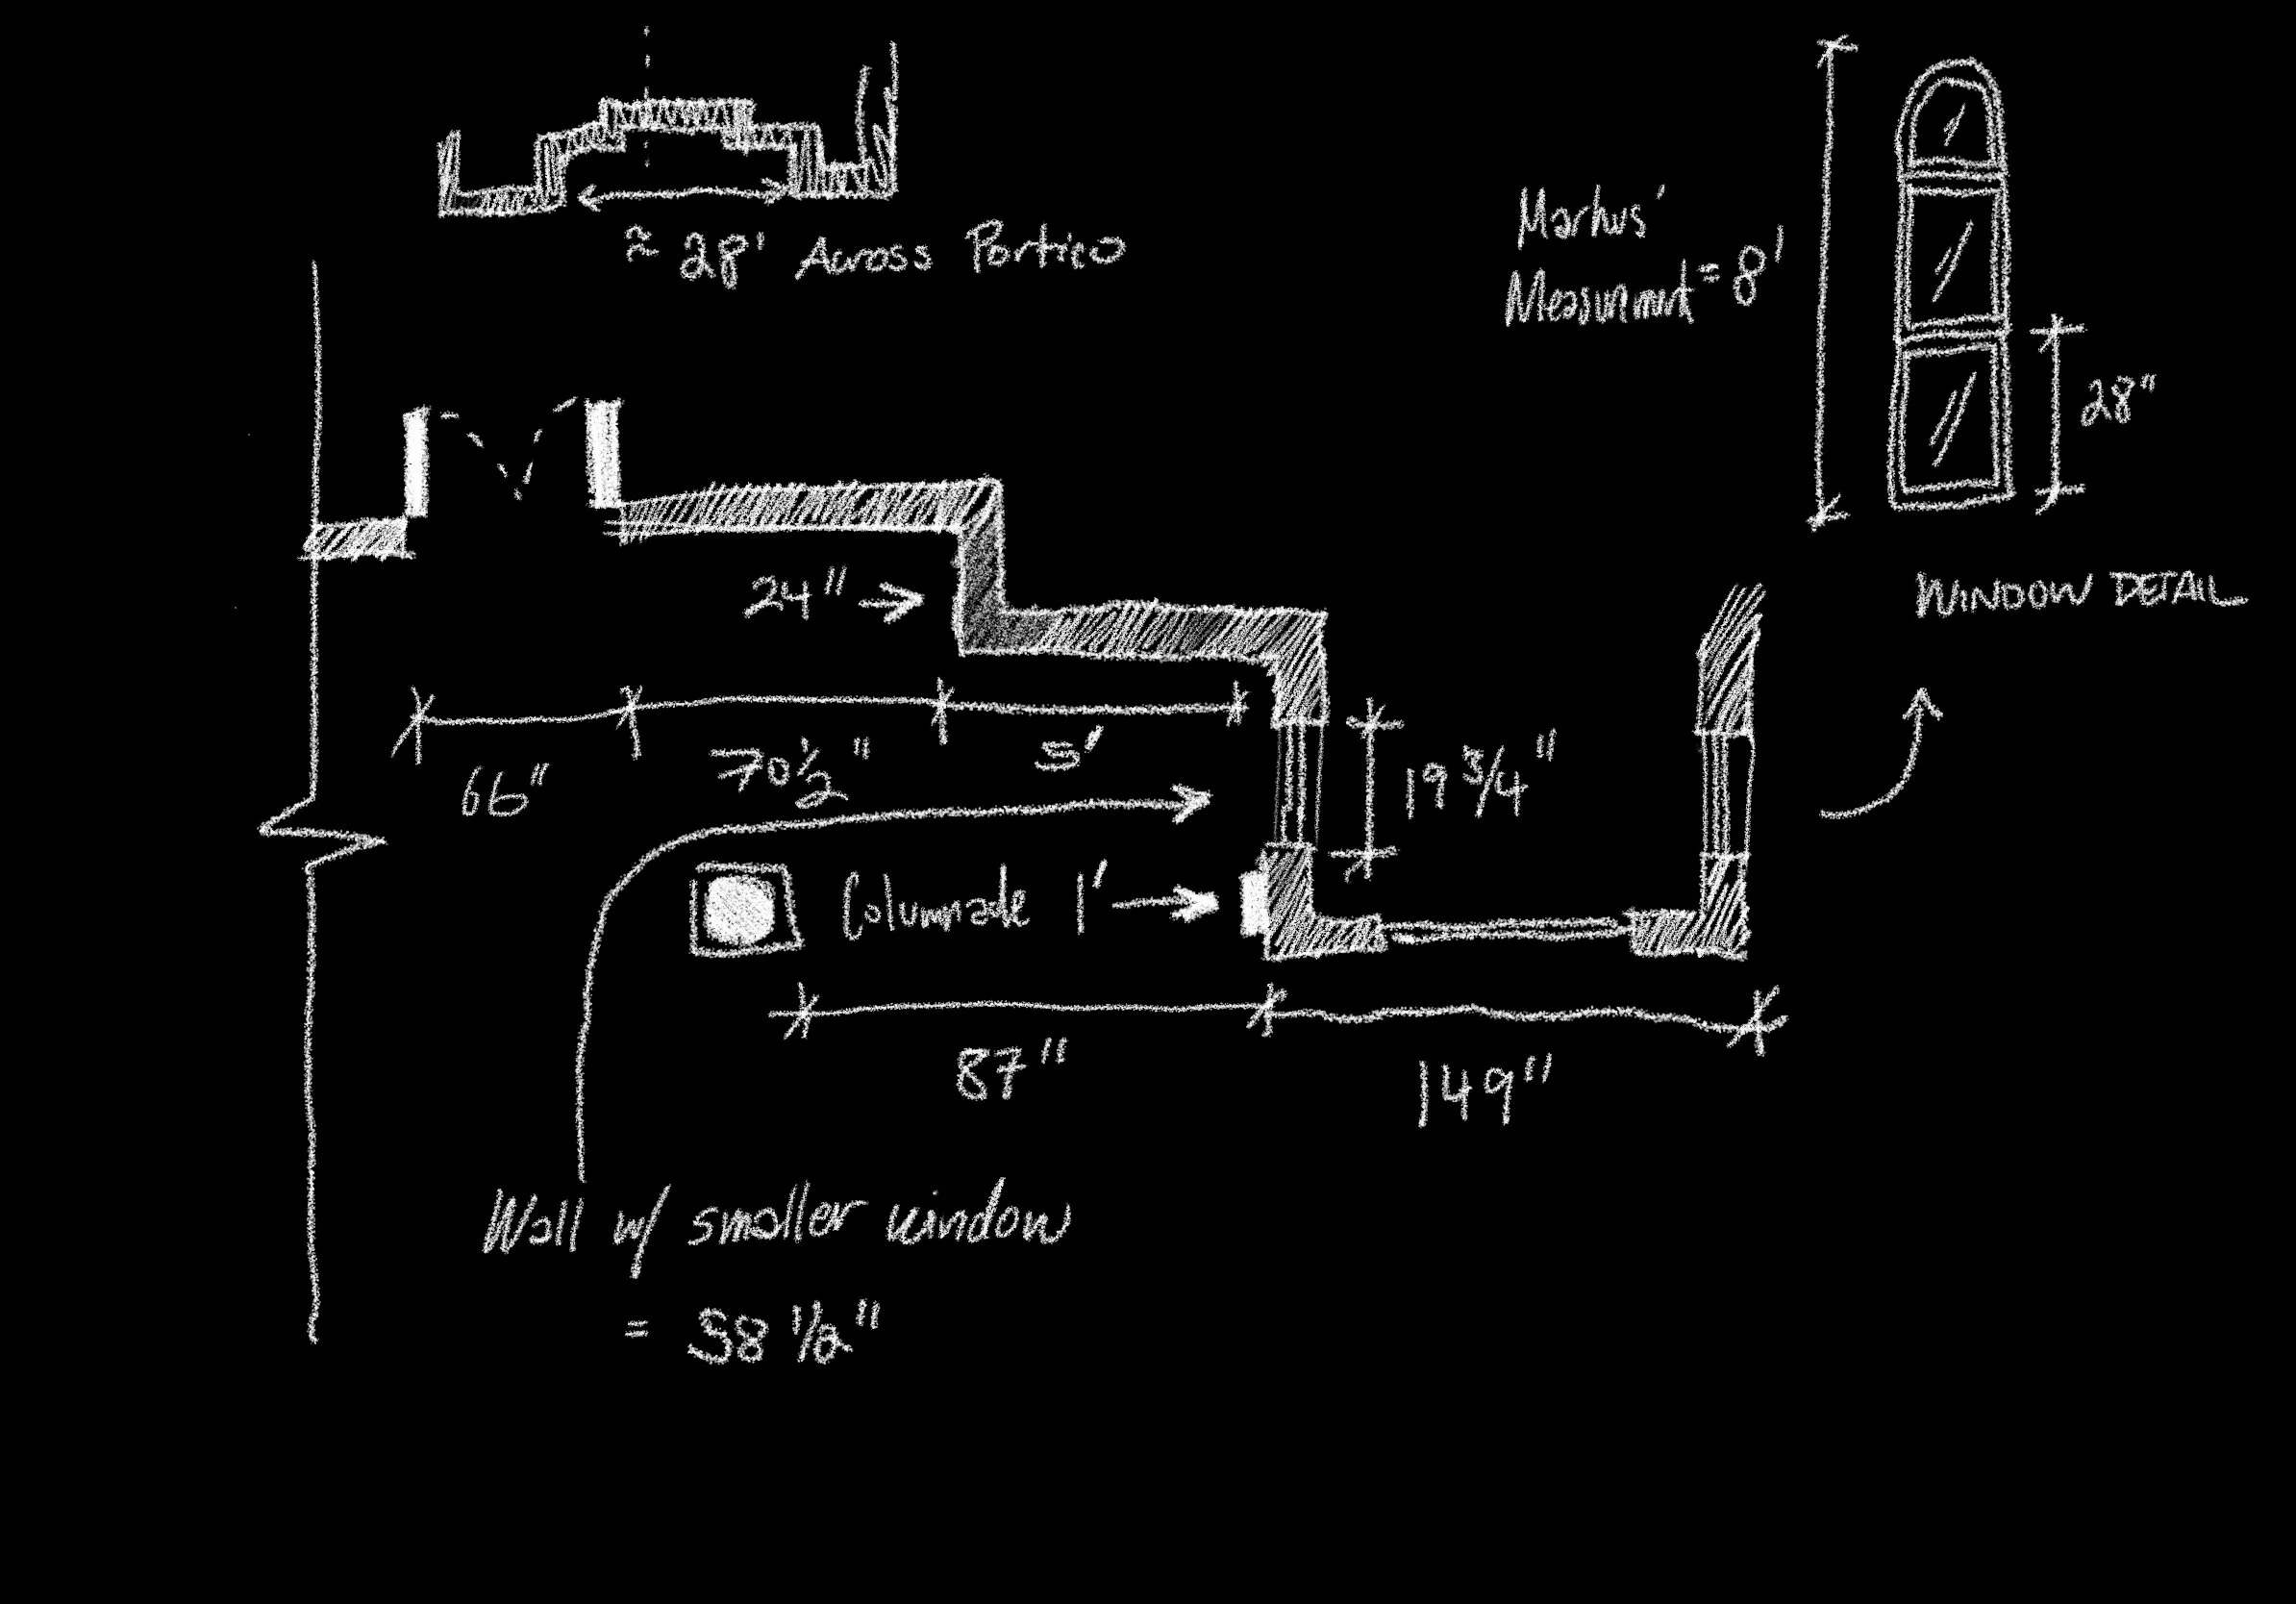 ≈ 28' Across Portico
Markus'
Measurment = 8'
28"
WINDOW DETAIL
24" →
66"
70 1/2"
5'
19 3/4"
Columnade 1' →
87"
149"
Wall w/ smaller window
= 58 1/2"